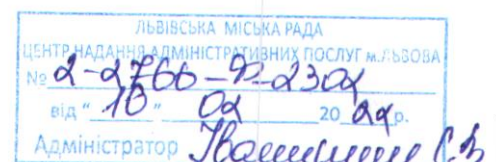 ЛЬВІВСЬКА МІСЬКА РАДА
ЦЕНТР НАДАННЯ АДМІНІСТРАТИВНИХ ПОСЛУГ м.ЛЬВОВА
№ 2-2766-Ф-2302
від "10" 02 20 22 р.
Адміністратор